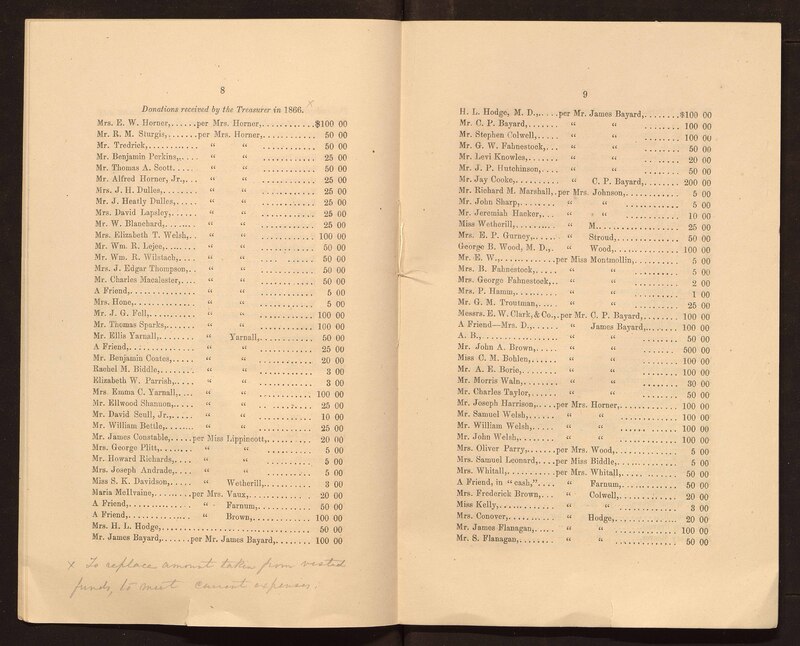 8
Donations received by the Treasurer in 1866. x
Mrs. E. W. Horner,......per Mrs. Horner,..............$100 00
Mr. R. M. Sturgis,.......per Mrs. Horner,............. 50 00
Mr. Tredrick,.............. “ “ ............. 50 00
Mr. Benjamin Perkins,.... “ “ ............. 25 00
Mr. Thomas A. Scott..... “ “ ............. 50 00
Mr. Alfred Horner, Jr.,... “ “ ............. 25 00
Mrs. J. H. Dulles,......... “ “ ............. 25 00
Mr. J. Heatly Dulles,..... “ “ ............. 25 00
Mrs. David Lapsley,...... “ “ ............. 25 00
Mr. W. Blanchard,........ “ “ ............. 25 00
Mrs. Elizabeth T. Welsh,.. “ “ ............. 100 00
Mr. Wm. R. Lejee,........ “ “ ............. 50 00
Mr. Wm. R. Wilstach,.... “ “ ............. 50 00
Mrs. J. Edgar Thompson,.. “ “ ............. 50 00
Mr. Charles Macalester,... “ “ ............. 50 00
A Friend,................. “ “ ............. 5 00
Mrs. Hone,................ “ “ ............. 5 00
Mr. J. G. Fell,............ “ “ ............. 100 00
Mr. Thomas Sparks,...... “ “ ............. 100 00
Mr. Ellis Yarnall,......... “ Yarnall,............. 50 00
A Friend,................. “ “ ............. 25 00
Mr. Benjamin Coates,..... “ “ ............. 20 00
Rachel M. Biddle,......... “ “ ............. 3 00
Elizabeth W. Parrish,..... “ “ ............. 3 00
Mrs. Emma C. Yarnall,... “ “ ............. 100 00
Mr. Ellwood Shannon,.... “ “ ............. 25 00
Mr. David Scull, Jr.,...... “ “ ............. 10 00
Mr. William Bettle,....... “ “ ............. 25 00
Mr. James Constable,.....per Miss Lippincott,........... 20 00
Mrs. George Plitt,........ “ “ ............. 5 00
Mr. Howard Richards,.... “ “ ............. 5 00
Mrs. Joseph Andrade,..... “ “ ............. 5 00
Miss S. K. Davidson,...... “ Wetherill,............. 3 00
Maria McIlvaine,..........per Mrs. Vaux,............... 20 00
A Friend,................. “ Farnum,............. 50 00
A Friend,................. “ Brown,............. 100 00
Mrs. H. L. Hodge,....................................... 50 00
Mr. James Bayard,......per Mr. James Bayard,........ 100 00
x To replace amount taken from vested
funds, to meet current expenses.
9
H. L. Hodge, M. D.,.....per Mr. James Bayard,........$100 00
Mr. C. P. Bayard,........ “ “ ........ 100 00
Mr. Stephen Colwell,..... “ “ ........ 100 00
Mr. G. W. Fahnestock,.... “ “ ........ 50 00
Mr. Levi Knowles,........ “ “ ........ 20 00
Mr. J. P. Hutchinson,..... “ “ ........ 50 00
Mr. Jay Cooke,............ “ C. P. Bayard,........ 200 00
Mr. Richard M. Marshall,.per Mrs. Johnson,............ 5 00
Mr. John Sharp,........... “ “ ............ 5 00
Mr. Jeremiah Hacker,..... “ “ ............ 10 00
Miss Wetherill,............ “ M................... 25 00
Mrs. E. P. Gurney,........ “ Stroud,............. 50 00
George B. Wood, M. D.,... “ Wood,.............. 100 00
Mr. E. W.,................per Miss Montmollin,......... 5 00
Mrs. B. Fahnestock,....... “ “ ......... 5 00
Mrs. George Fahnestock,.. “ “ ......... 2 00
Mrs. P. Hamm,............ “ “ ......... 1 00
Mr. G. M. Troutman,...... “ “ ......... 25 00
Messrs. E. W. Clark, & Co.,.per Mr. C. P. Bayard,......... 100 00
A Friend—Mrs. D.,....... “ James Bayard,........ 100 00
A. B.,..................... “ “ ........ 50 00
Mr. John A. Brown,....... “ “ ........ 500 00
Miss C. M. Bohlen,........ “ “ ........ 100 00
Mr. A. E. Borie,........... “ “ ........ 100 00
Mr. Morris Waln,.......... “ “ ........ 30 00
Mr. Charles Taylor,........ “ “ ........ 50 00
Mr. Joseph Harrison,.....per Mrs. Horner,............. 100 00
Mr. Samuel Welsh,........ “ “ ............. 100 00
Mr. William Welsh,....... “ “ ............. 100 00
Mr. John Welsh,........... “ “ ............. 100 00
Mrs. Oliver Parry,........per Mrs. Wood,.............. 5 00
Mrs. Samuel Leonard,....per Miss Biddle,............. 5 00
Mrs. Whitall,..............per Mrs. Whitall,............ 50 00
A Friend, in “cash,”..... “ Farnum,............. 50 00
Mrs. Frederick Brown,.... “ Colwell,............. 20 00
Miss Kelly,................ “ “ ............. 3 00
Mrs. Conover,............. “ Hodge,............. 20 00
Mr. James Flanagan,...... “ “ ............. 100 00
Mr. S. Flanagan,.......... “ “ ............. 50 00